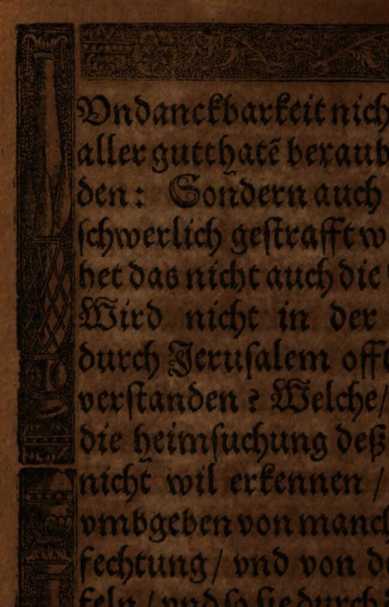 Vndanckbarkeit nich
aller gutthatẽ beraub
den: Soñdern auch
ſchwerlich geſtrafft w
het das nicht auch die
Wird nicht in der
durch Jeruſalem offe
verſtanden? Welche/
die heimſuchung deß
nicht wil erkennen /
vmbgeben von manch
fechtung/ vnd von de
feln / vnd ſo ſie durch